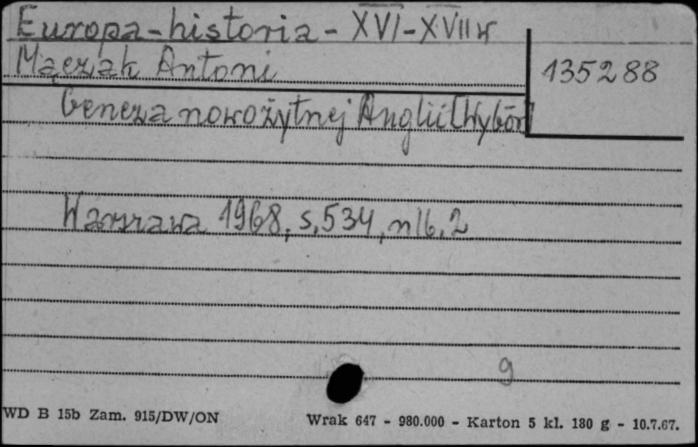 Europa - historia - XVI - XVII w
Mączak Antoni
135288
Geneza nowożytnej Anglii [Wybór]
Warszawa 1968, s, 534, nlb, 2
9
WD B 15b Zam. 915/DW/ON
Wrak 647 - 980.000 - Karton 5 kl. 180 g - 10.7.67.